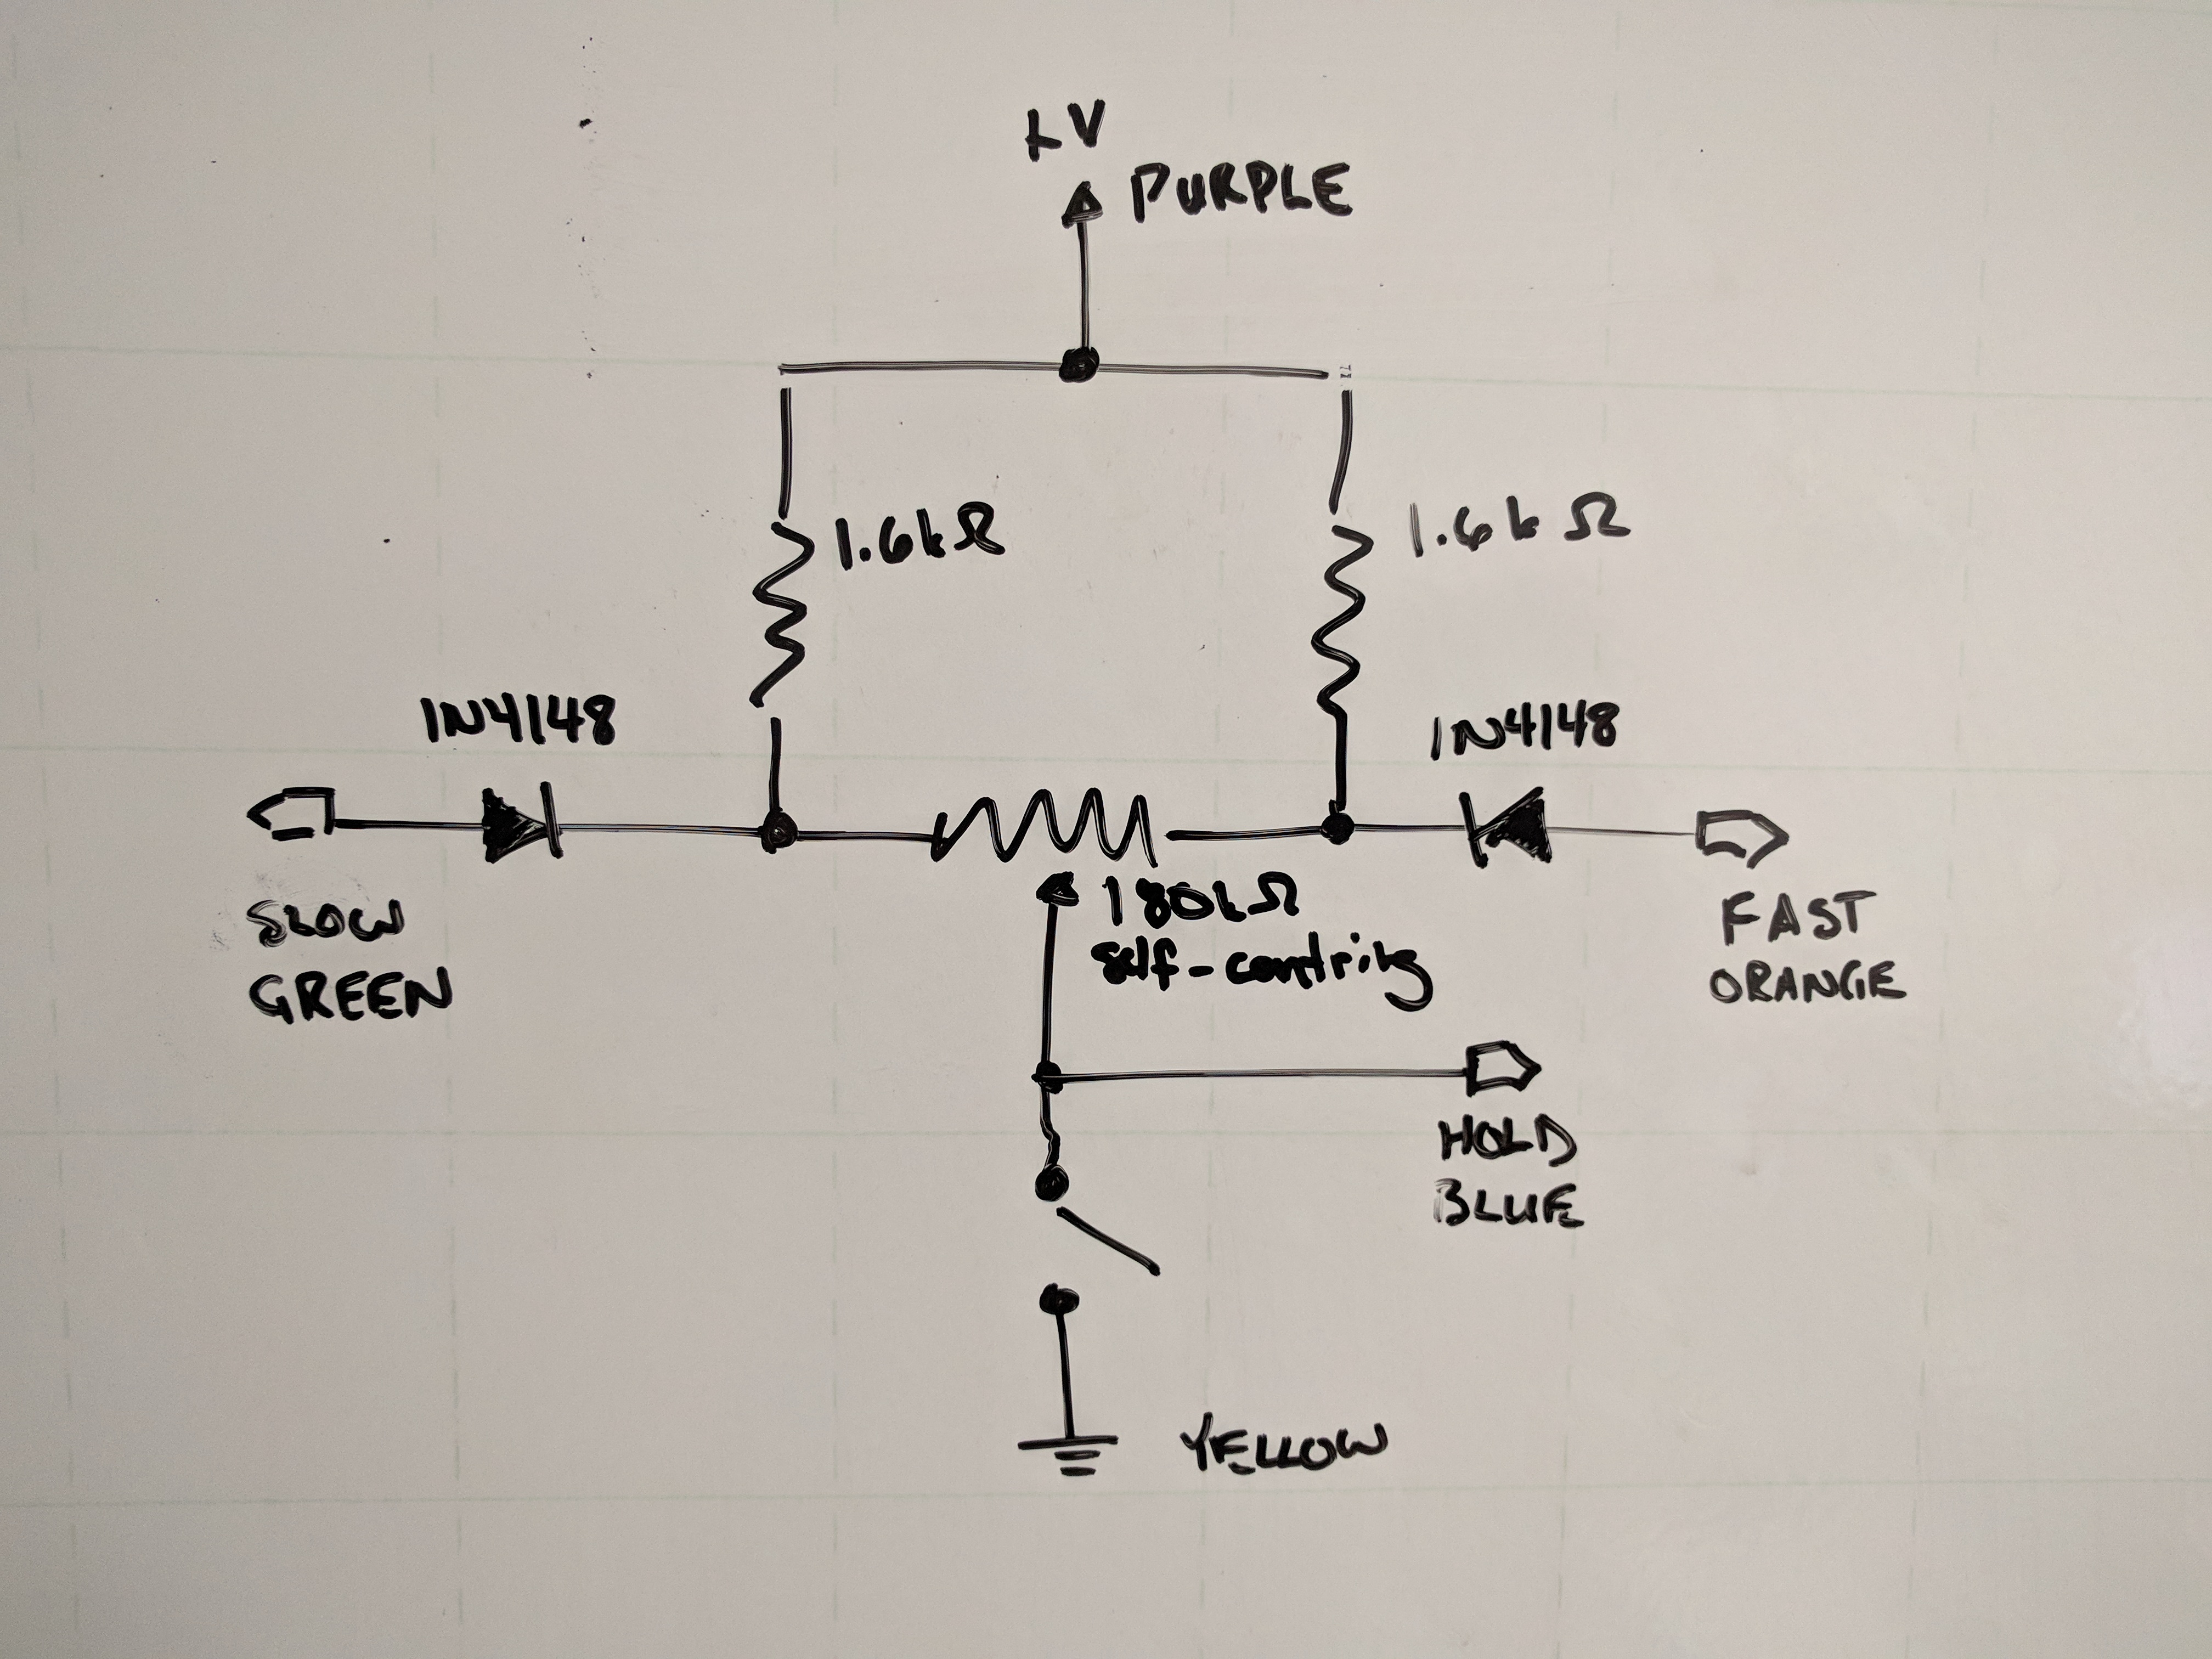 +V
PURPLE
1.6kΩ
1.6kΩ
1N4148
1N4148
SLOW
GREEN
180kΩ
self-centring
FAST
ORANGE
HOLD
BLUE
YELLOW